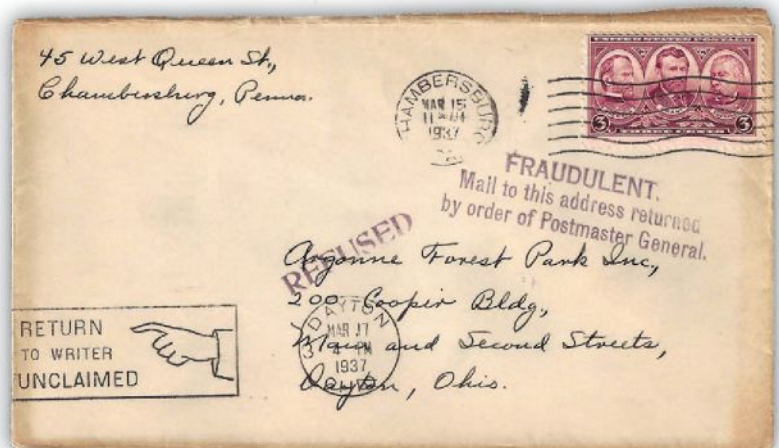 45 West Queen St.,
Chambersburg, Penna.
CHAMBERSBURG
MAR 15
11
1937
3
3
FRAUDULENT.
Mail to this address returned
by order of Postmaster General.
REFUSED
Argonne Forest Park Inc,
200 Cooper Bldg,
Main and Second Streets,
Dayton, Ohio.
DAYTON
MAR 17
4 PM
1937
OHIO
RETURN
TO WRITER
UNCLAIMED